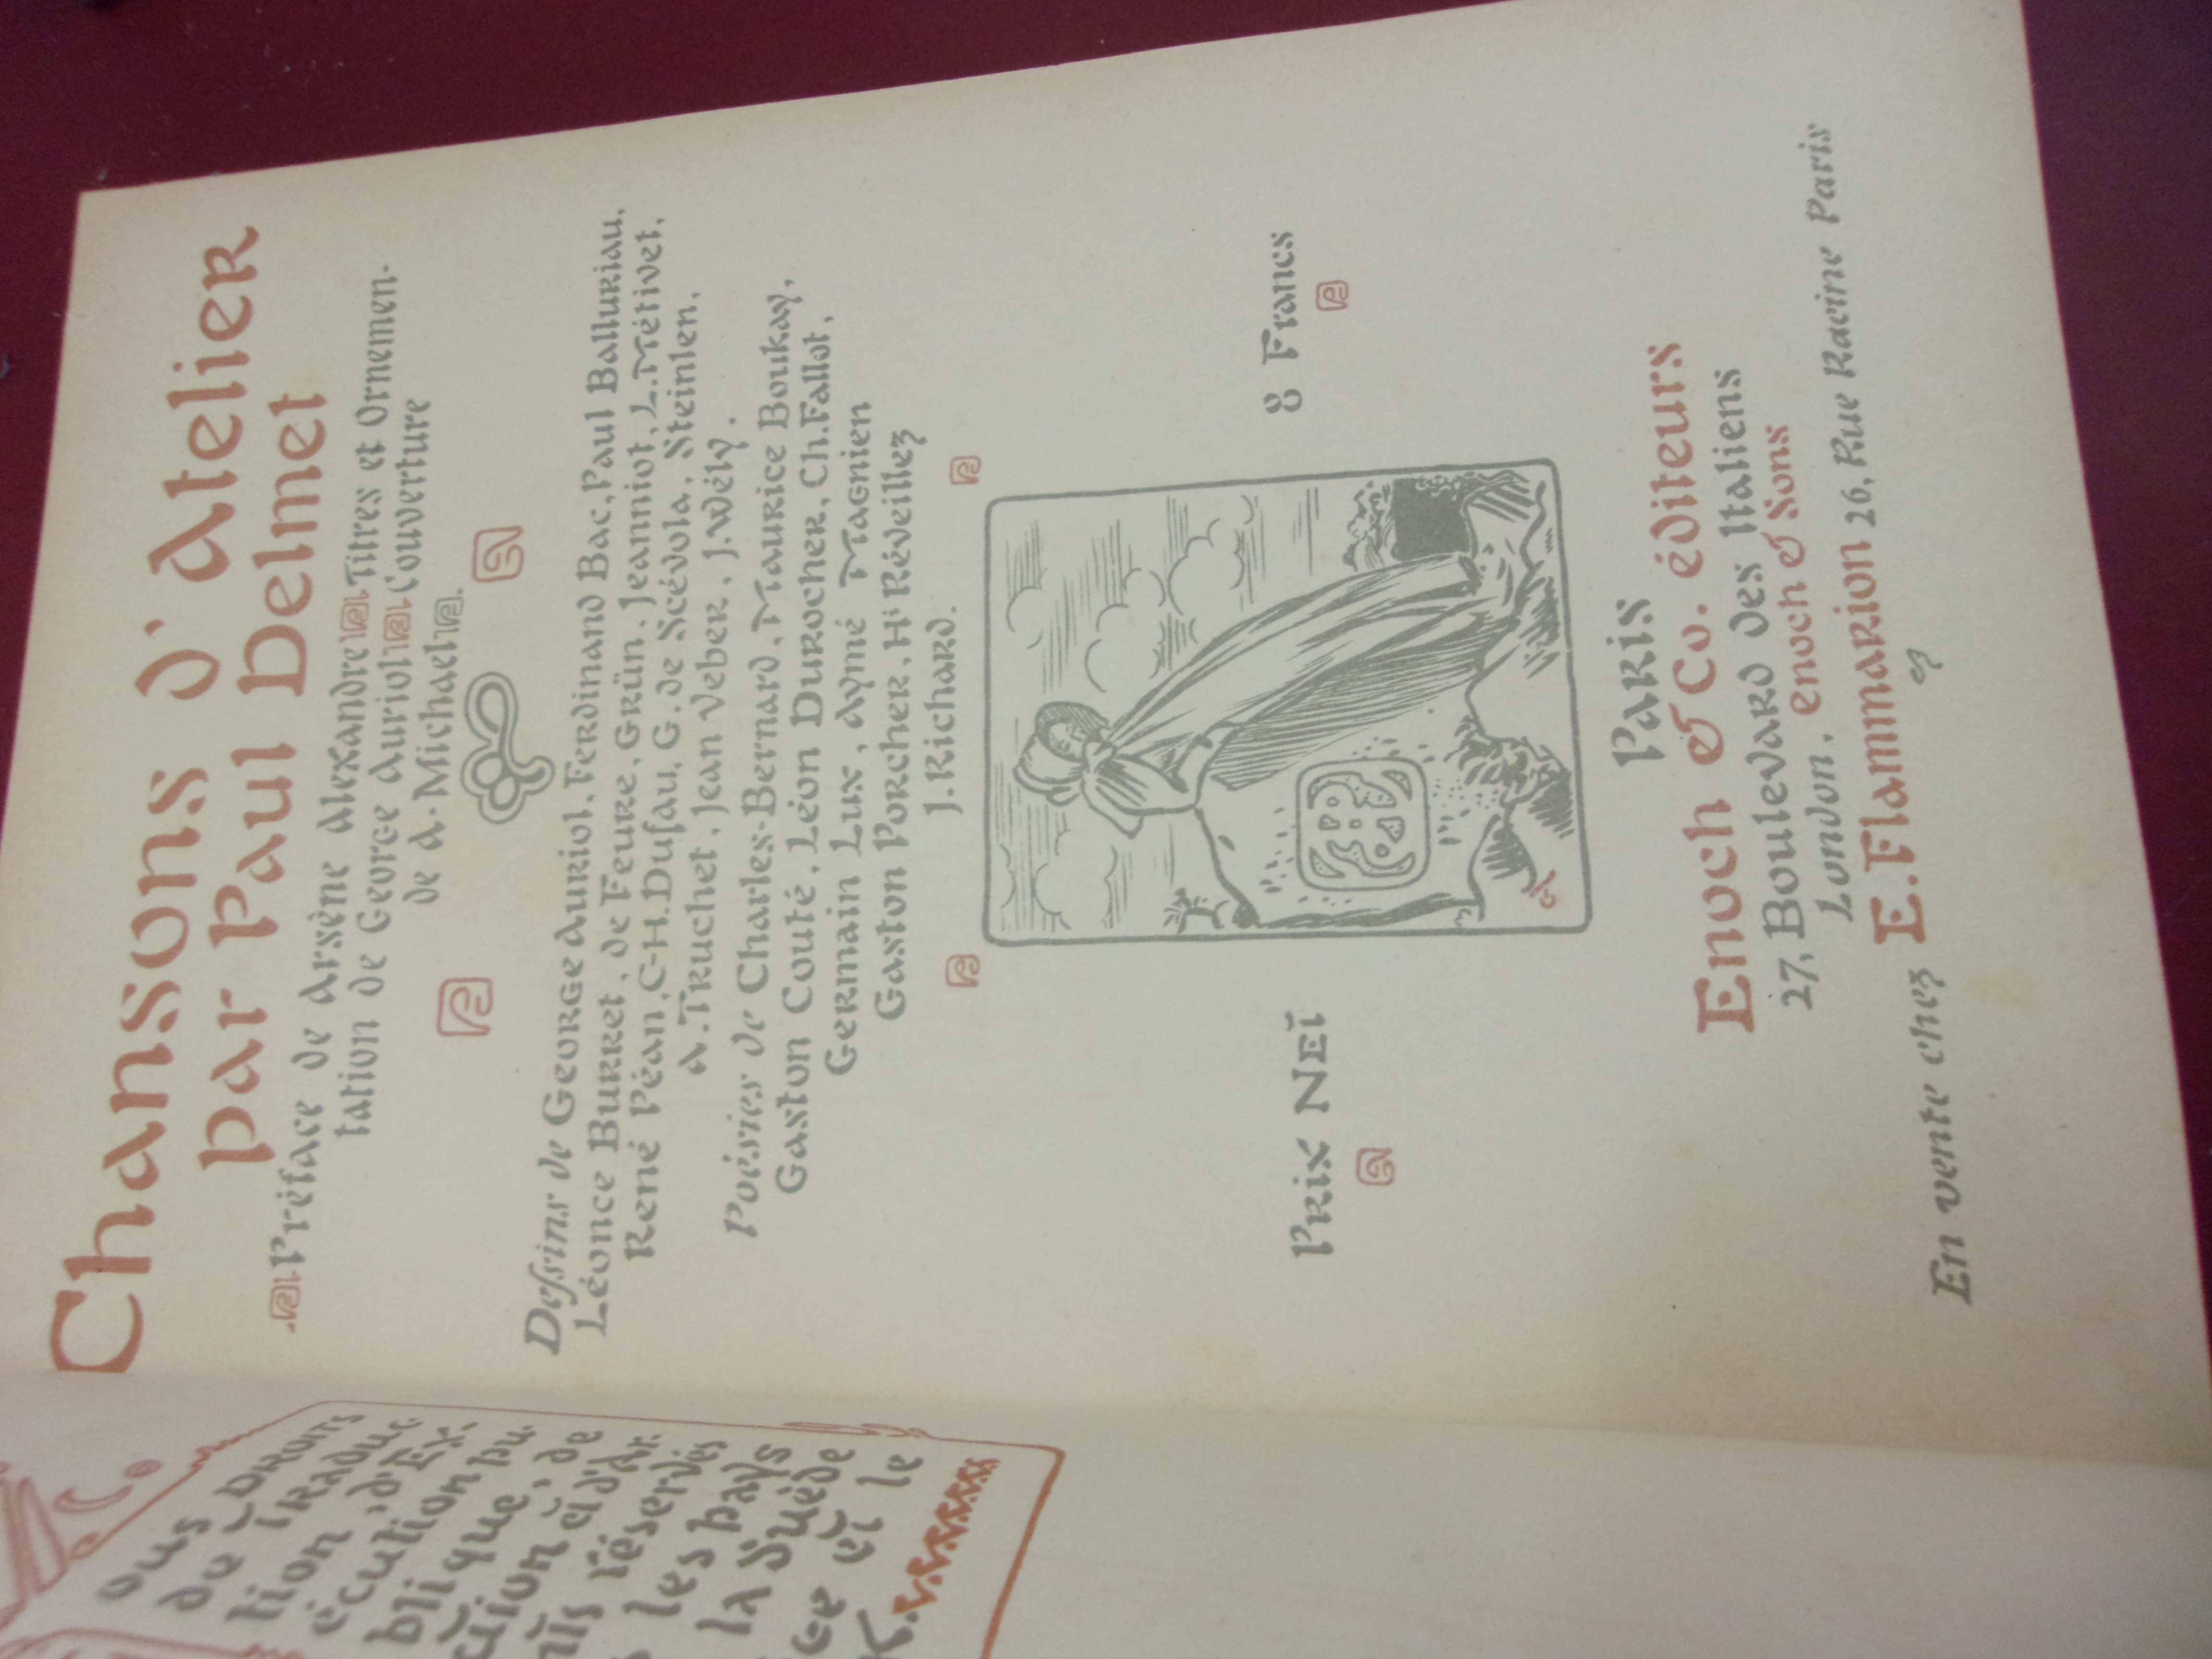 Chansons d'Atelier
par Paul Delmet
Préface de Arsène Alexandre Titres et Ornemen-
tation de George Auriol Couverture
de A. Michael
Dessins de George Auriol, Ferdinand Bac, Paul Balluriau,
Léonce Burret, de Feure, Grün, Jeanniot, L. Métivet,
René Péan, C-H. Dufau, G. de Scévola, Steinlen,
A. Truchet, Jean Veber, J. Wély.
Poésies de Charles-Bernard, Maurice Boukay,
Gaston Couté, Léon Durocher, Ch. Fallot,
Germain Lux, Aymé Magnien
Gaston Porcher, Hi Réveillez
J. Richard.
Prix Net 8 Francs
Paris
Enoch & Co. éditeurs
27, Boulevard des Italiens
London. Enoch & Sons
En vente chez E. Flammarion 26, Rue Racine Paris
ous droits
de traduc
tion, d'Ex-
écution pu-
blique, de
d'Ar-
réservés
les pays
la Suède
et le